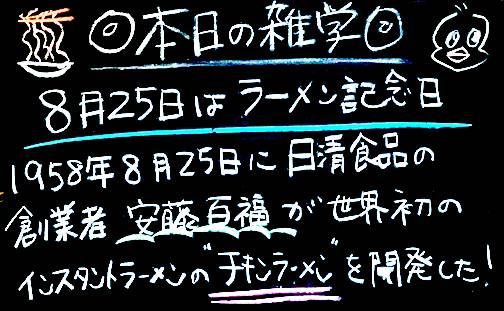 ◎本日の雑学◎
8月25日はラーメン記念日
1958年8月25日に日清食品の
創業者 安藤百福が世界初の
インスタントラーメンの"チキンラーメン"を開発した!